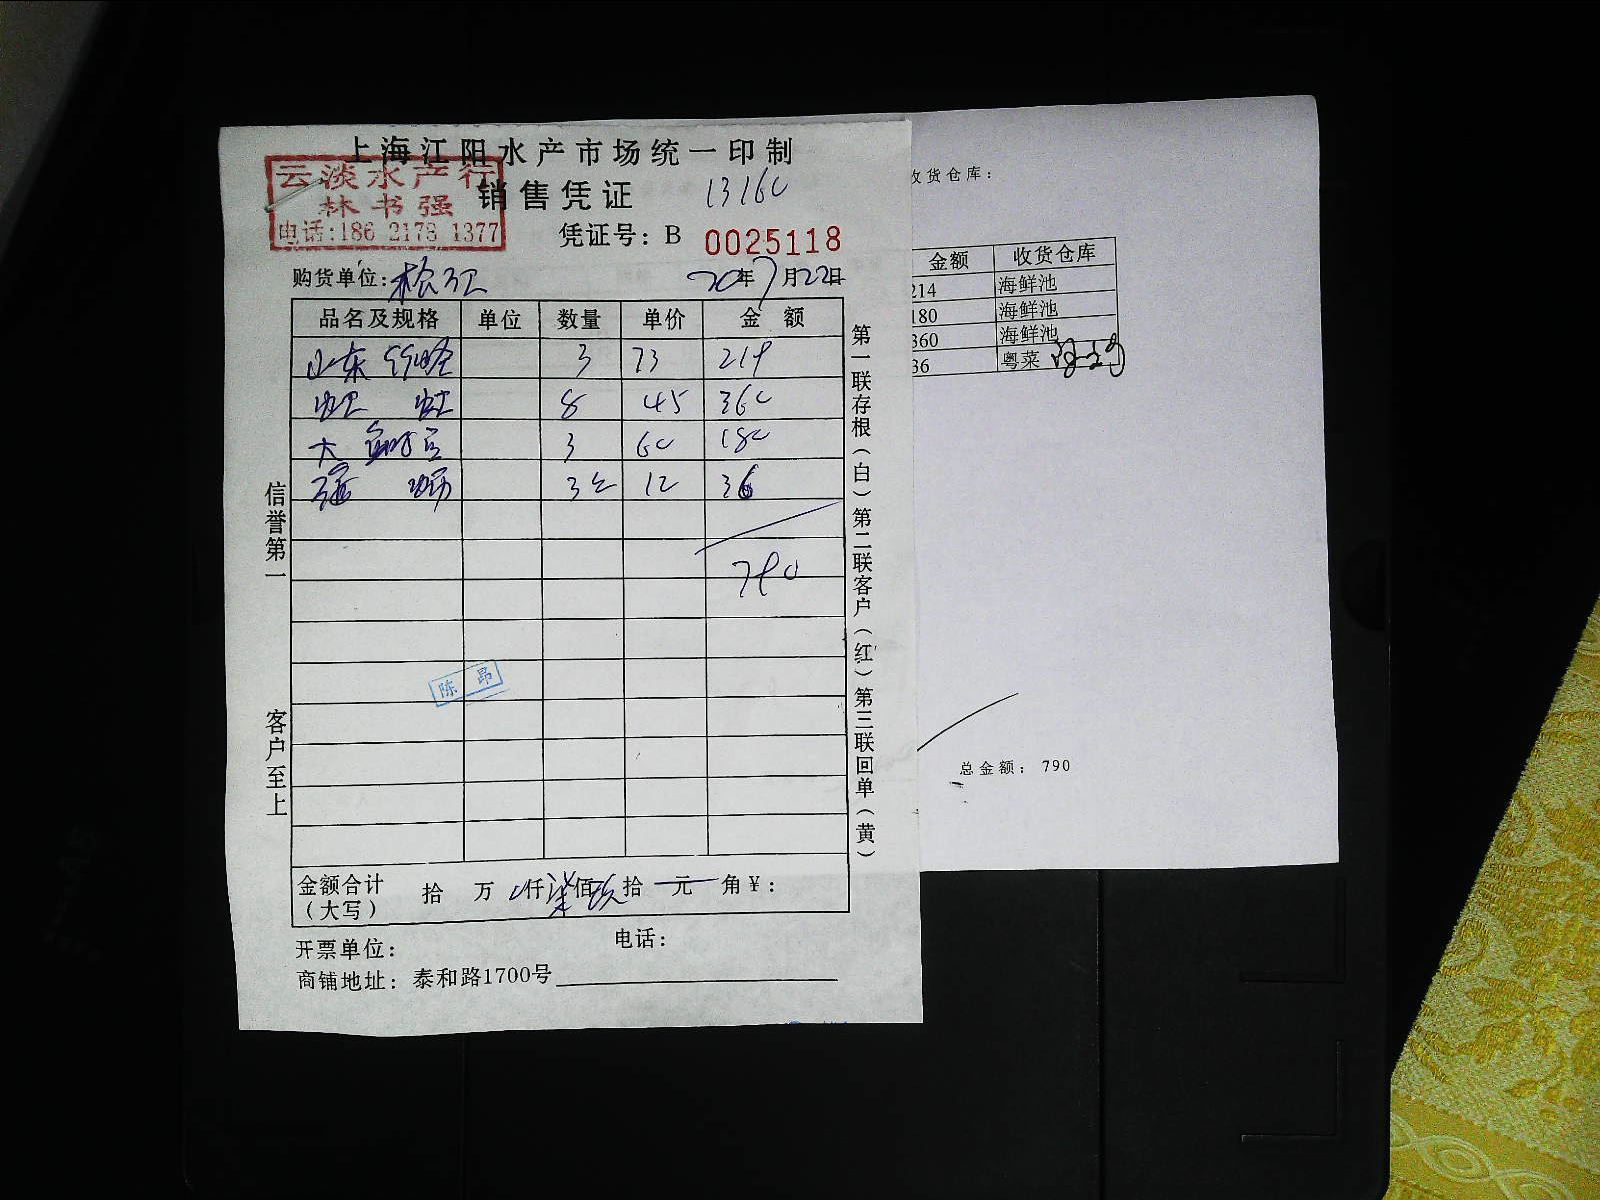 上海江阳水产市场统一印制
云淡水产行
林书强
电话:186 2178 1377
销售凭证
凭证号：B 0025118
购货单位: 松江 20年7月22日
品名及规格 单位 数量 单价 金额
山东 3 73 219
8 45 360
大 3 60 180
3 12 36
790
陈昂
信誉第一
客户至上
第一联存根（白）第二联客户（红）第三联回单（黄）
金额合计（大写） 拾 万 仟 柒佰 玖拾 元 角 ¥：
开票单位： 电话：
商铺地址：泰和路1700号
收货仓库：
金额 收货仓库
214 海鲜池
180 海鲜池
360 海鲜池
36 粤菜
总金额：790